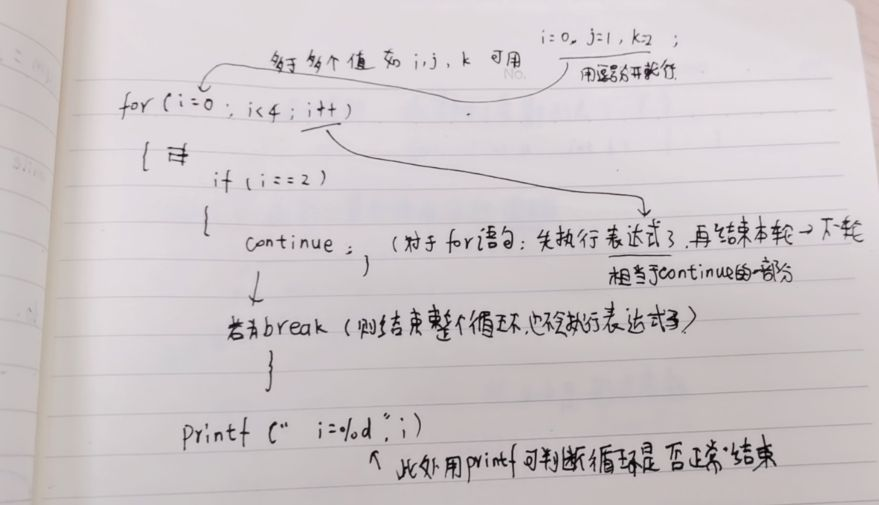 多于多个值 如 i,j,k 可用 i=0, j=1, k=2 ;
用逗号分开就行
No.
for (i=0 ; i<4 ; i++)
{
if (i==2)
{
continue ; (对于for语句: 先执行表达式3,再结束本轮→下一轮
相当于continue的一部分
若为break (则结束整个循环,也不会执行表达式3)
}
printf (" i=%d", i)
此处用printf可判断循环是否正常结束